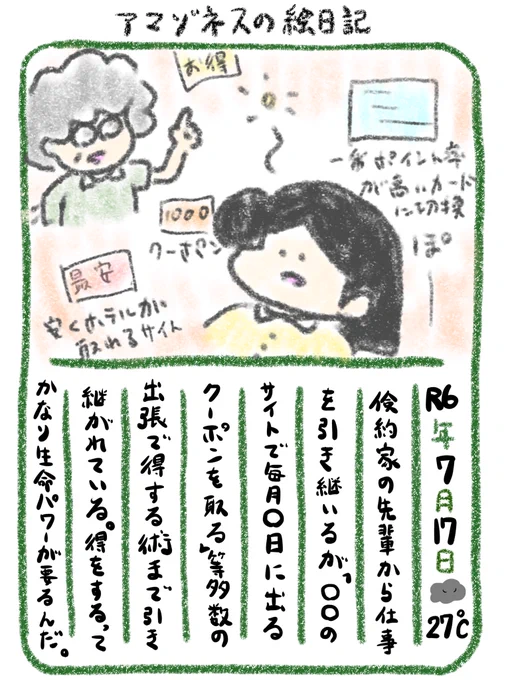 アマゾネスの絵日記
お得
一番ポイント率
が高いカード
に切換
ぽ〜
1000
クーポン
最安
安くホテルが
取れるサイト
R6年7月17日 27℃
倹約家の先輩から仕事
を引き継いるが、○○の
サイトで毎月○日に出る
クーポンを取る、等多数の
出張で得する術まで引き
継がれている。得をするって
かなり生命パワーが要るんだ。